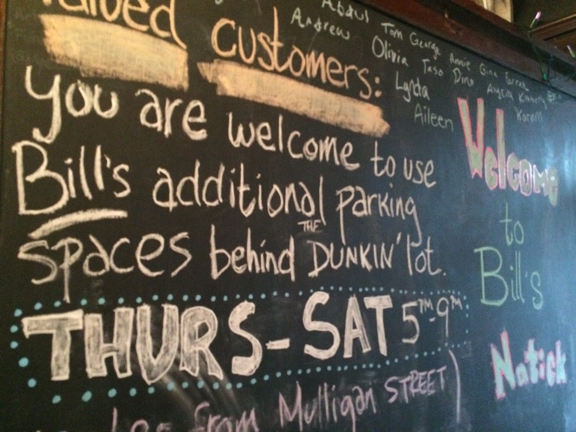 Valued
customers:
you are welcome to use
Bill's additional parking
spaces behind THE DUNKIN' lot.
THURS-SAT 5PM-9PM
from Mulligan STREET)
Abdul Tom George Annie Gina
Andrew Olivia Taso Dino Alycia Kimberly
Lynda
Aileen
Welcome
to
Bill's
Natick